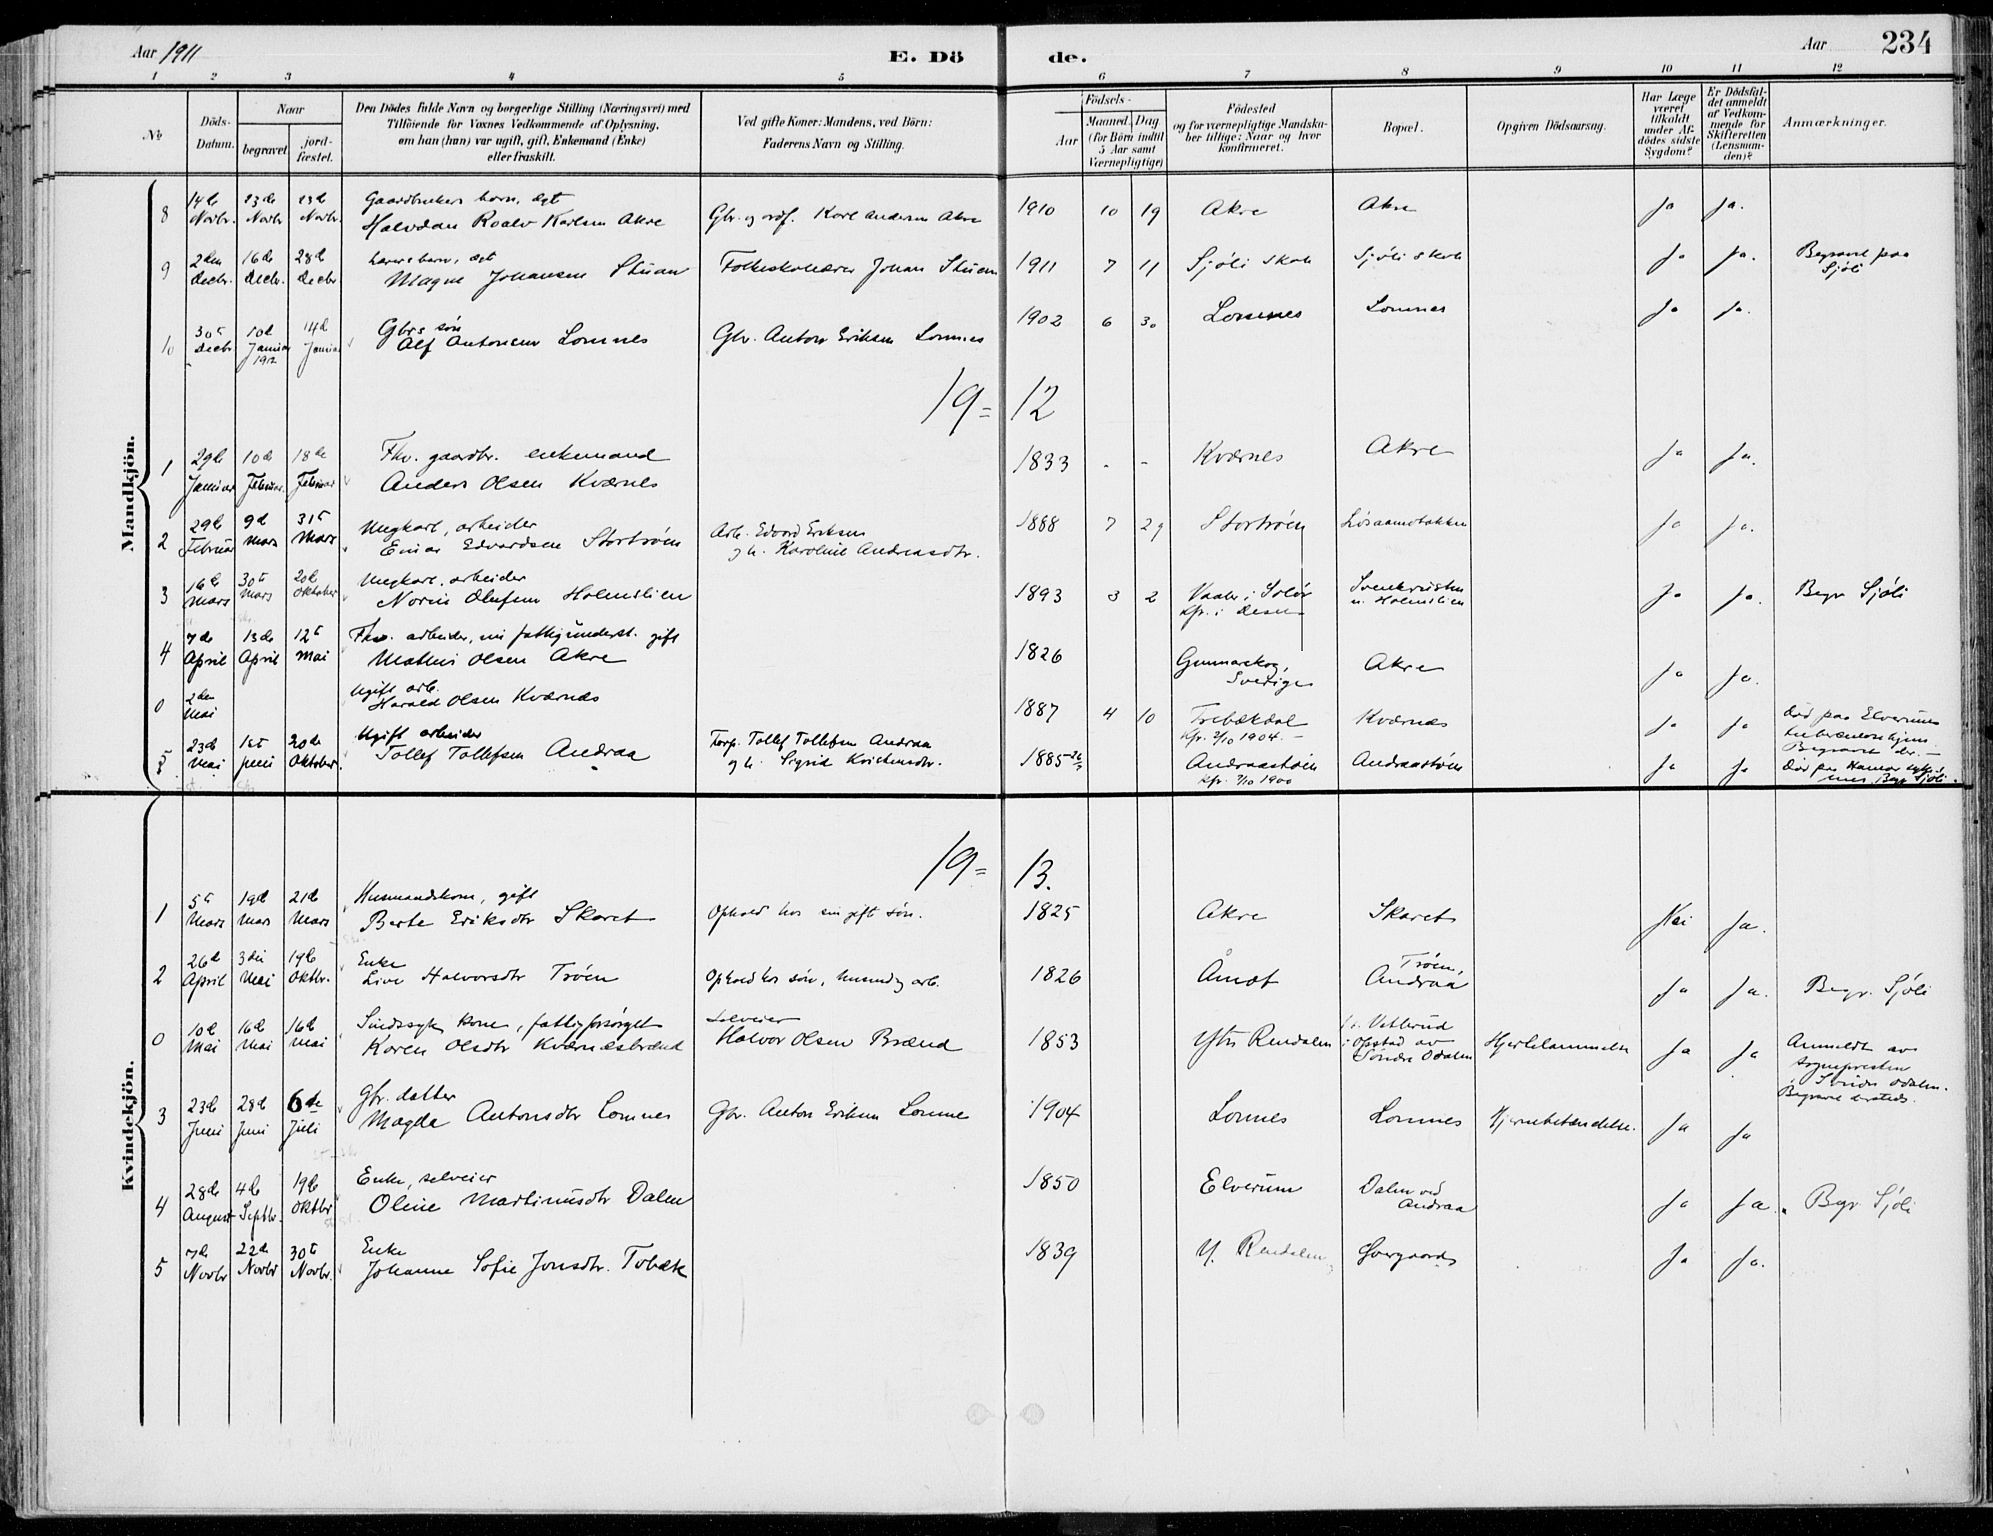 Aar 1911
E. Dö
de.
Aar
234
1 2 3 4 5 6 7 8 9 10 11 12
№
Döds-Datum.
Naar
begravet.
jord-fæstet.
Den Dödes fulde Navn og borgerlige Stilling (Næringsvei) med
Tilföiende for Voxnes Vedkommende af Oplysning,
om han (hun) var ugift, gift, Enkemand (Enke)
eller fraskilt.
Ved gifte Koner: Mandens, ved Börn:
Faderens Navn og Stilling.
Födsels-
Aar
Maaned, Dag
(for Börn indtil
5 Aar samt
Værnepligtige)
Födested
og for værnepligtige Mandska-
ber tillige: Naar og hvor
konfirmeret.
Bopæl.
Opgiven Dödsaarsag.
Har Læge
været
tilkaldt
under Af-
dödes sidste
Sygdom?
Er Dödsfal-
det anmeldt
af Vedkom-
mende for
Skifteretten
(Lensman-
den)?
Anmærkninger.
Mandkjön.
8 14de Novbr. 23de Novbr 23de Novbr. Gaardbrukers barn, dgt
Halvdan Roalv Karlsen Akre Gbr. og ordf. Karl Andersen Akre 1910 10 19 Akre Akre Ja Ja.
9 2den Decbr. 16de Decbr. 28de Decbr lærers barn, dgt
Magne Johansen Stuan Folkeskolelærer Johan Stuen 1911 7 11 Sjöli skole Sjöli skole Ja Ja. Begravet paa
Sjöli
10 30te Decbr 10de Januar 1912 14de Januar Gbrs sön
Alf Antonsen Lomnes Gbr. Anton Eriksen Lomnes 1902 6 30 Lomnes Lomnes Ja Ja.
19=12
1 29de Januar 10de Februar. 18de Februar Fhv. gaardbr. enkemand
Anders Olsen Kværnes 1833 - - Kværnes Akre Ja Ja.
2 29de Februar 9de Mars 31te Mars Ungkarl, arbeider
Einar Edvardsen Stortröen Arb. Edvard Eriksen
og h. Karoline Andreasdtr. 1888 7 29 Stortröen Ja Ja.
3 16de Mars 30te Mars 20de Oktober Ungkarl, arbeider
Olufsen Holmslien 1893 3 2 Vaaler i Solör
kfr. i
Holmslien Ja Ja. Begr Sjöli
4 7de April 13de April 12te Mai Fhv. arbeider, nu fattigunderst. gift
Mathis Olsen Akre 1826 Gunnarskog,
Sverige Akre Ja Ja.
0 2den Mai Ugift arb.
Harald Olsen Kværnes 1887 4 10
kfr. 2/10 1904. Kværnes Ja Ja Död paa Elverums
tuberculosehjem
Begravet der.
5 23de Mai 1ste Juni 20de Oktober. Ugift arbeider
Tollef Tollefsen Andraa Forp. Tollef Tollefsen Andraa
og h. Sigrid Kristensdtr. 1885 Andraastöen
kfr. 7/10 1900 Andraastöen Ja Ja Död paa Hamar
Begr Sjöli.
19=13.
Kvindekjön.
1 5te Mars 19de Mars 21de Mars Husmandskone, gift
Berte Eriksdtr Skaret Ophold hos sin gift sön. 1825 Akre Skaret Nei Ja.
2 26de April 3die Mai 19de Oktbr. Enke
Live Halvorsdtr Tröen Ophold hos sön, 1826 Åmot Tröen,
Andraa Ja Ja. Begr. Sjöli
0 10de Mai 16de Mai 16de Mai Sindssyk kone, fattigforsörget
Karen Olsdtr Kværnesbrænd Selveier
Halvor Olsen Brænd 1853 Ytre Rendalen
Söndre Odalen Hjertelammelse Ja Ja Anmeldt av
sognepresten
i Söndre Odalen.
Begravet dersteds.
3 23de Juni 28de Juni 6te Juli Gbr. datter
Magda Antonsdtr Lomnes Gbr. Anton Eriksen Lomnes 1904 Lomnes Lomnes Hjernebetændelse. Ja Ja
4 28de August 4de Septbr. 19de Oktbr Enke, selveier
Oline Martinusdtr Dalen 1850 Elverum Dalen ved
Andraa Ja Ja. Begr Sjöli
5 7de Novbr 22de Novbr 30te Novbr. Enke
Johanne Sofie Jonsdtr. Tobæk 1839 Y. Rendalen Ja Ja.